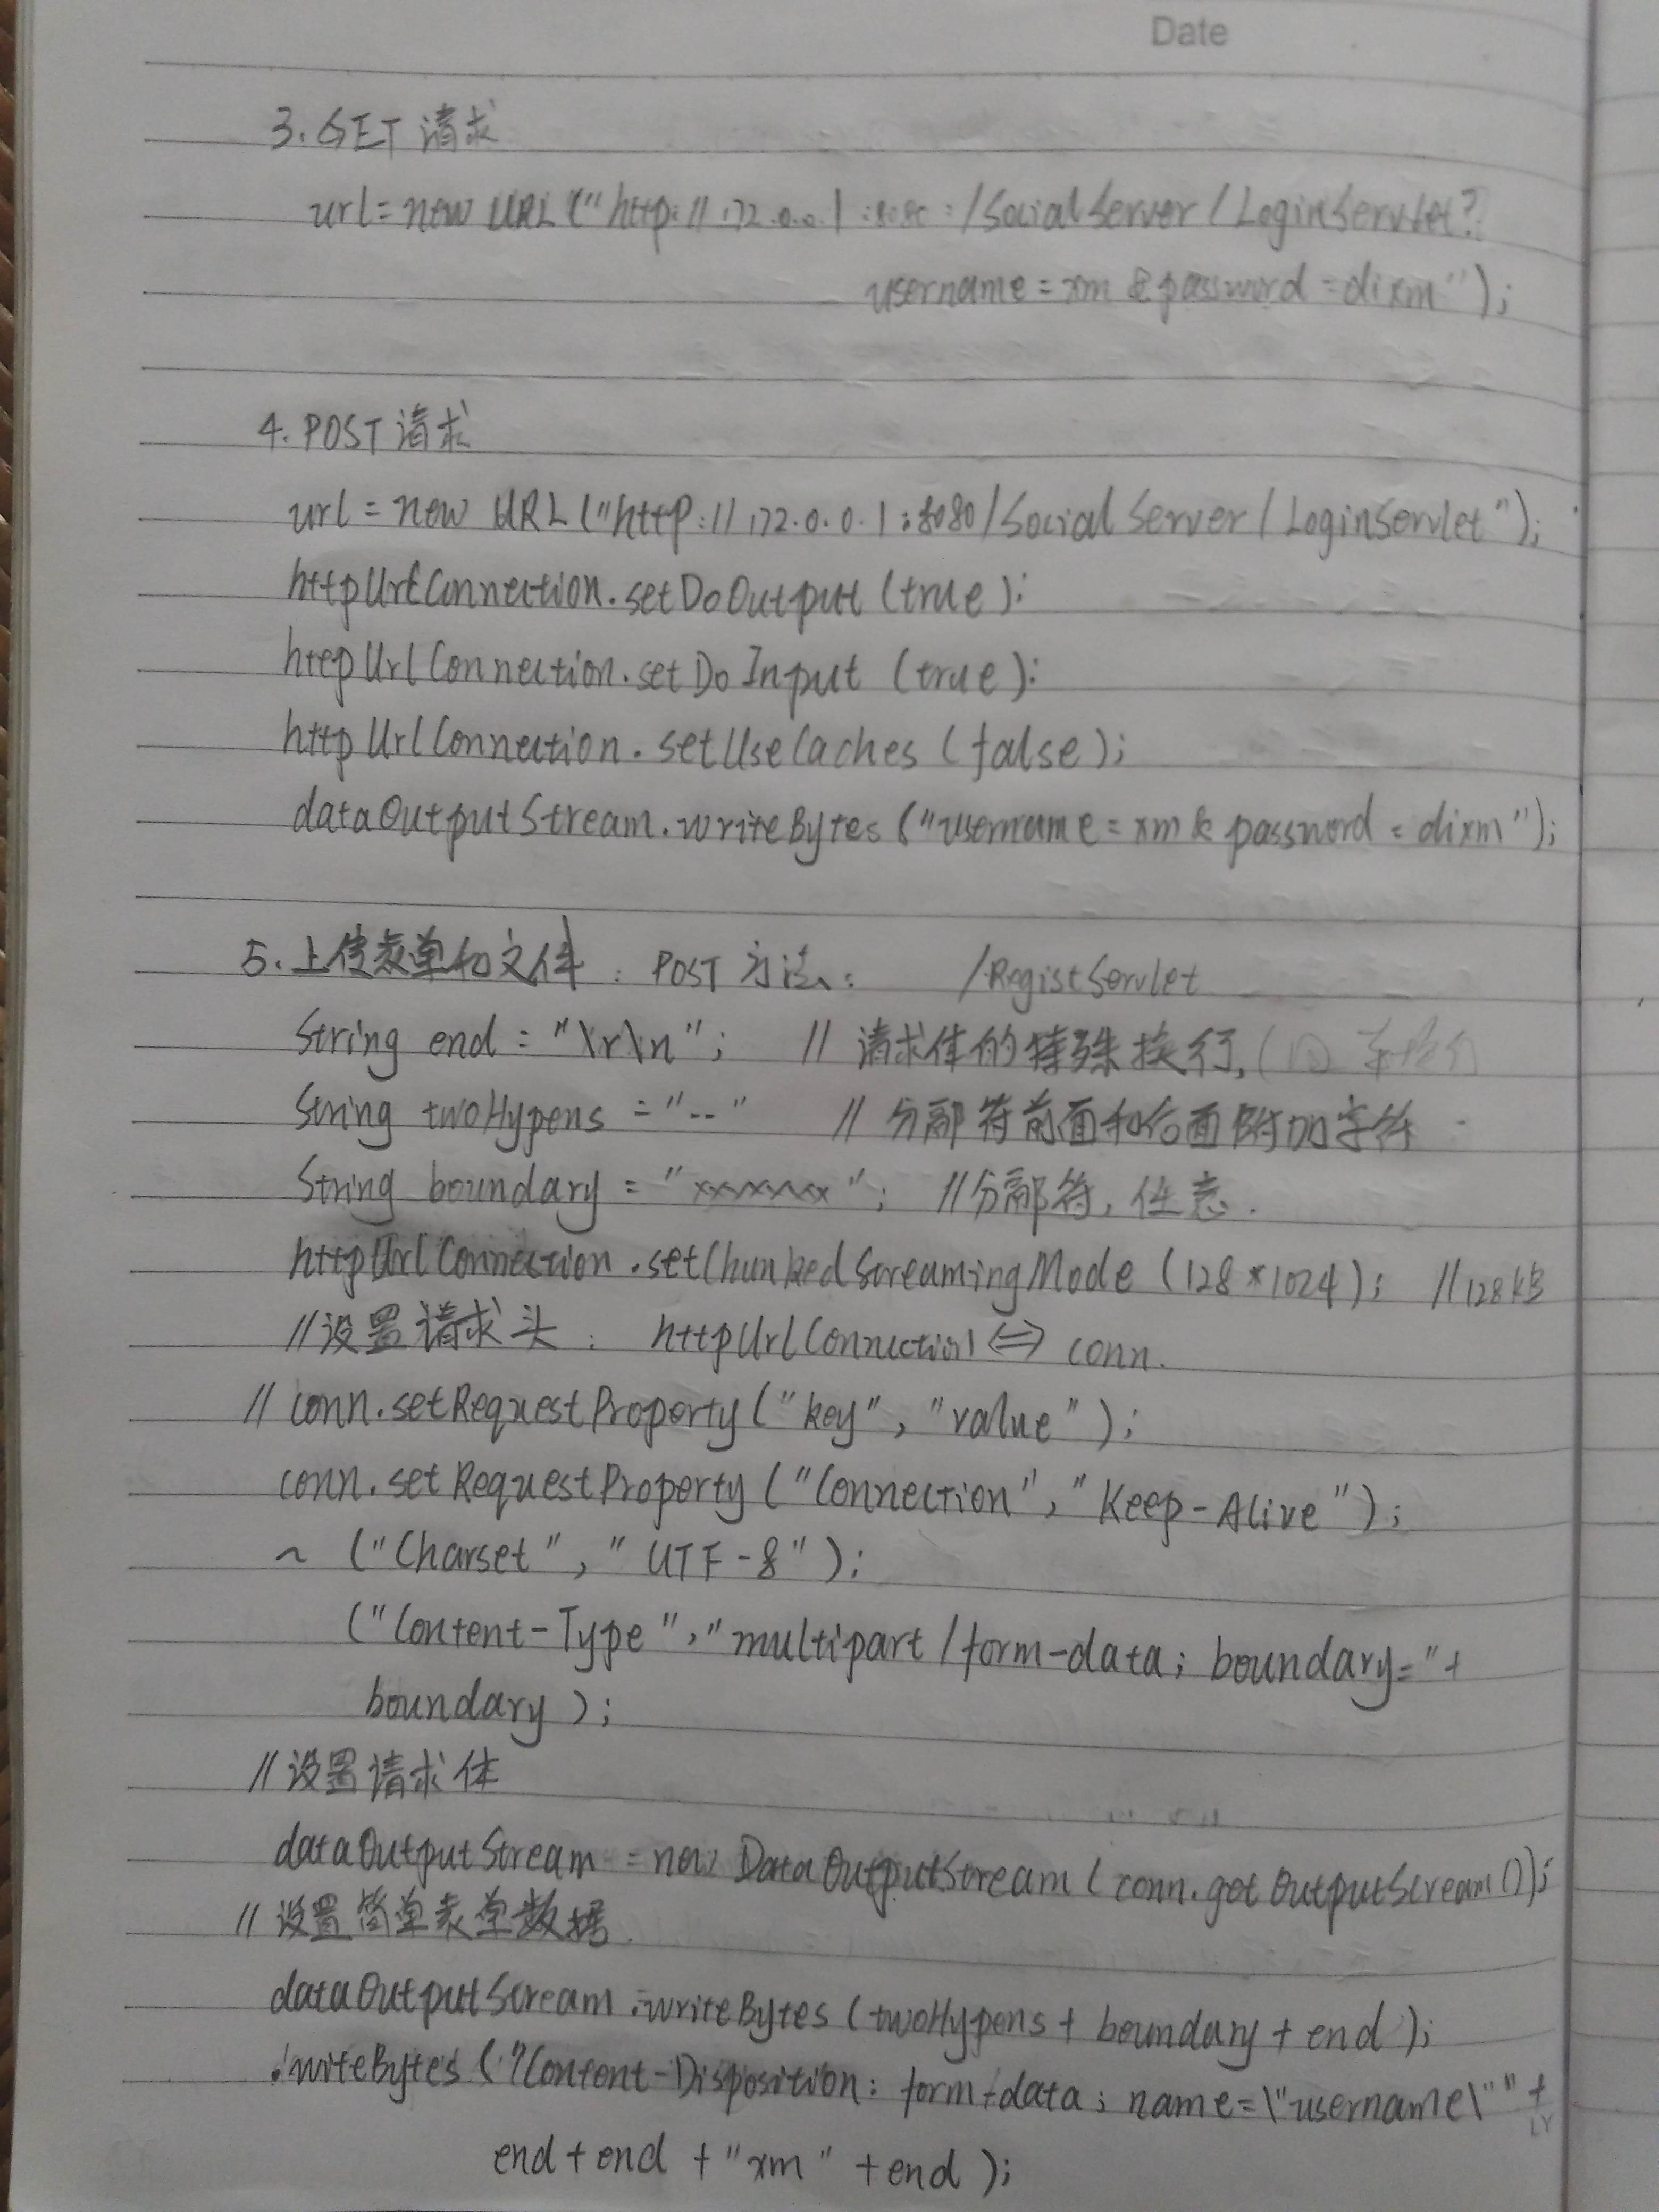 Date
3. GET 请求
url = new URL ("http://172.0.0.1:8080:/SocialServer/LoginServlet?
username=xm&password=dixm");
4. POST 请求
url = new URL ("http://172.0.0.1:8080/SocialServer/LoginServlet");
httpUrlConnection.setDoOutput (true);
httpUrlConnection.setDoInput (true);
httpUrlConnection.setUseCaches (false);
dataOutputStream.writeBytes ("username=xm&password=dixm");
5. 上传表单和文件: POST 方法: /RegistServlet
String end = "\r\n"; // 请求体的特殊换行,
String twoHypens = "--" // 分部符前面和后面附加字符
String boundary = "xxxxxxx"; //分部符, 任意.
httpUrlConnection.setChunkedStreamingMode (128*1024); //128kB
//设置请求头: httpUrlConnection <=> conn.
// conn.setRequestProperty ("key", "value");
conn.setRequestProperty ("Connection", "Keep-Alive");
~ ("Charset", "UTF-8");
("Content-Type", "multipart/form-data; boundary="+
boundary);
//设置请求体
dataOutputStream = new DataOutputStream (conn.getOutputStream());
//设置简单表单数据.
dataOutputStream.writeBytes (twoHypens + boundary + end);
.writeBytes ("Content-Disposition: form-data; name=\"username\"" +
end + end + "xm" + end);